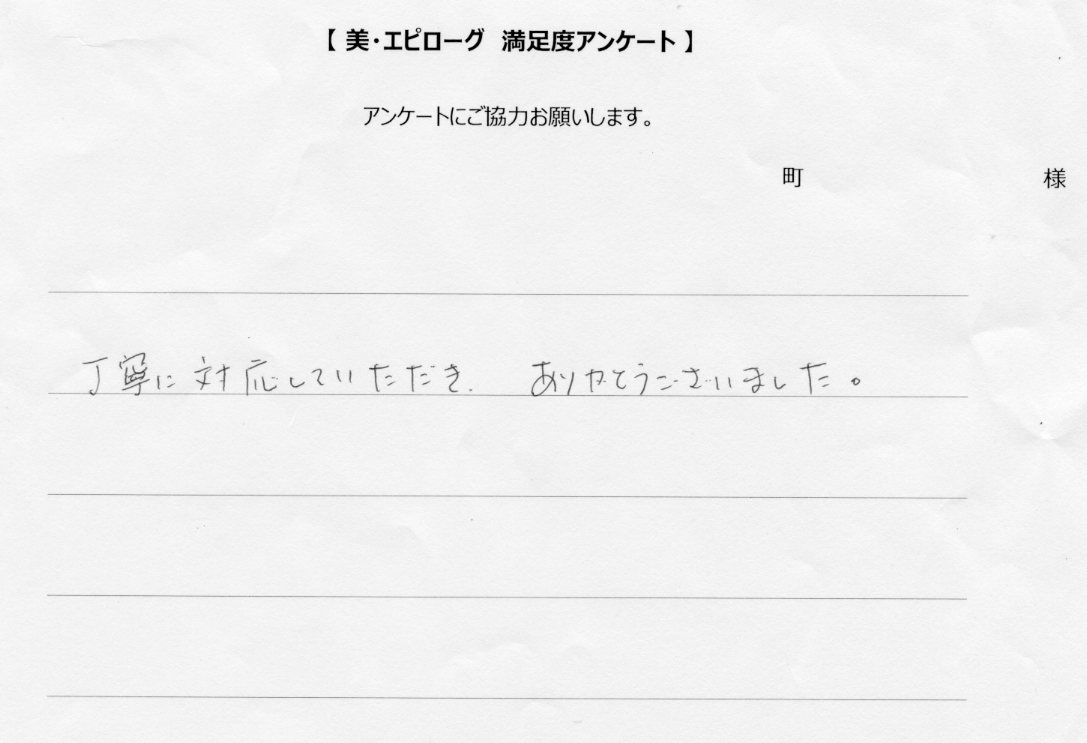 【 美・エピローグ 満足度アンケート 】
アンケートにご協力お願いします。
町 様
丁寧に対応していただき、 ありがとうございました。